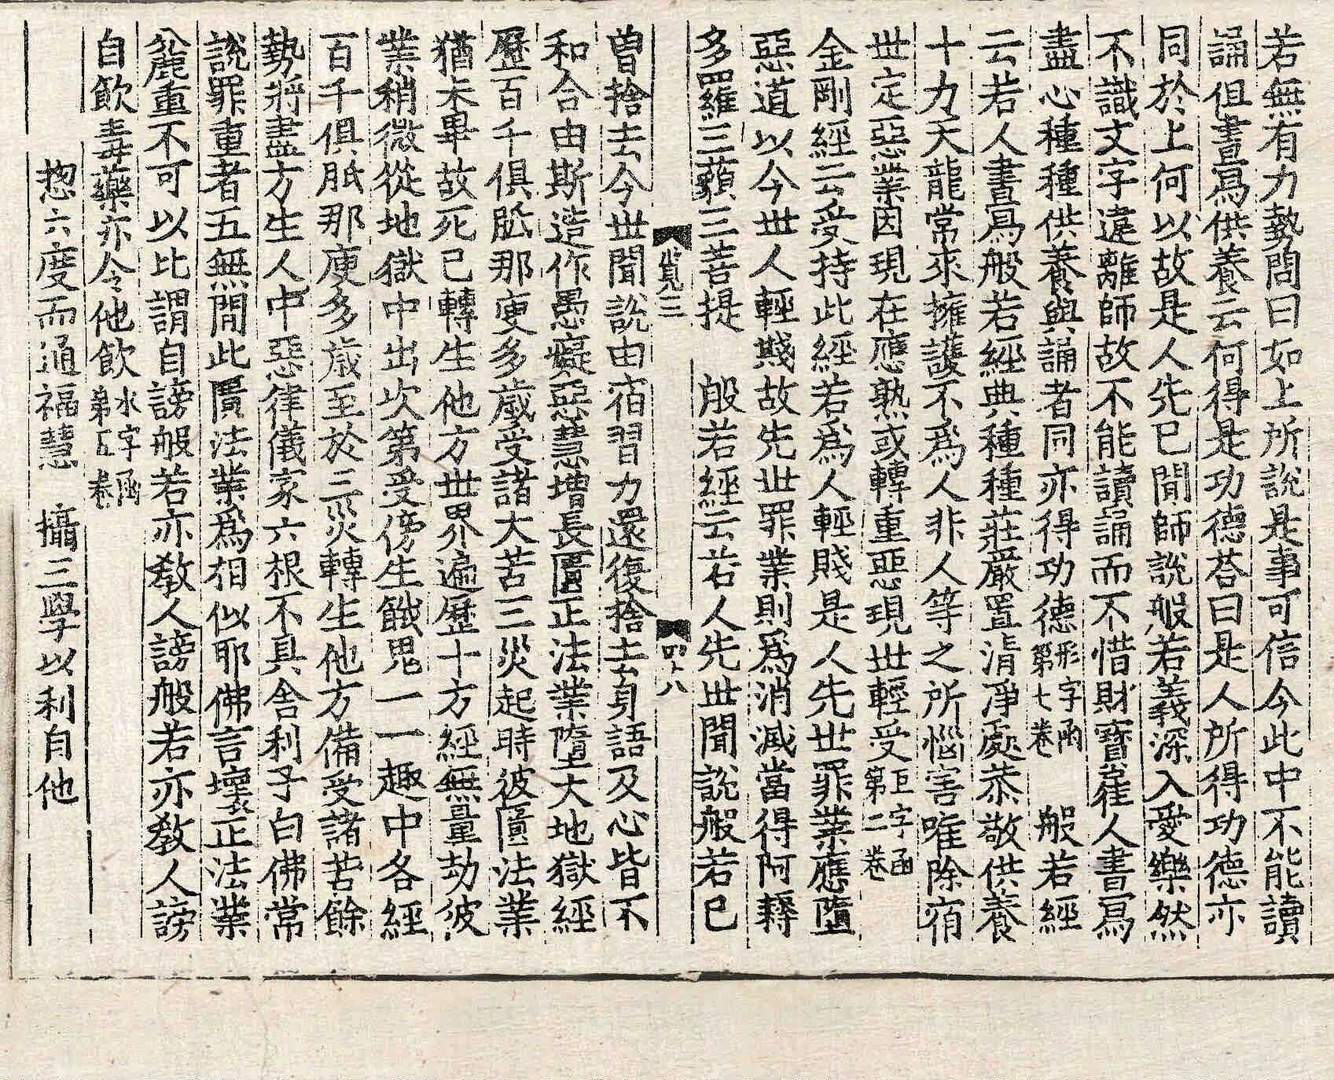 若無有力勢問曰如上所說是事可信今此中不能讀
誦但書寫供養云何得是功德荅曰是人所得功德亦
同於上何以故是人先已聞師說般若義深入愛樂然
不識文字違離師故不能讀誦而不惜財寶雇人書寫
盡心種種供養與誦者同亦得功德形字函第七卷 般若經
云若人書寫般若經典種種莊嚴置清淨處恭敬供養
十力天龍常來擁護不為人非人等之所惱害唯除宿
世定惡業因現在應熟或轉重惡現世輕受臣字函第二卷
金剛經云受持此經若為人輕賤是人先世罪業應墮
惡道以今世人輕賤故先世罪業則為消滅當得阿耨
多羅三藐三菩提 般若經云若人先世聞說般若已
覽三 四十八
曾捨去今世聞說由宿習力還復捨去身語及心皆不
和合由斯造作愚癡惡慧增長匱正法業墮大地獄經
歷百千俱胝那庾多歲受諸大苦三災起時彼匱法業
猶未畢故死已轉生他方世界遍歷十方經無量劫彼
業稍微從地獄中出次第受傍生餓鬼一一趣中各經
百千俱胝那庾多歲至於三災轉生他方備受諸苦餘
勢將盡方生人中惡律儀家六根不具舍利子白佛常
說罪重者五無間此匱法業為相似耶佛言壞正法業
麁重不可以比謂自謗般若亦教人謗般若亦教人謗
自飲毒藥亦令他飲水字函第五卷
揔六度而通福慧 攝三學以利自他